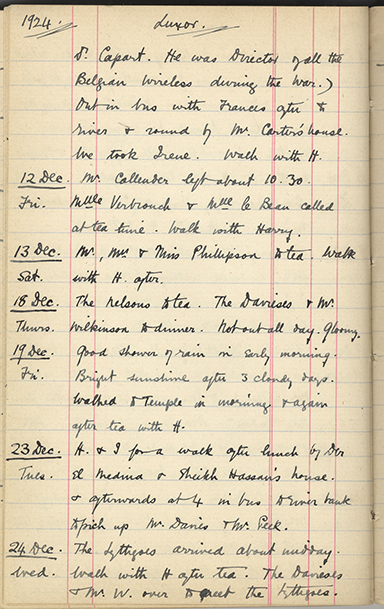 1924. Luxor.
Dr. Capart. He was Director of all the
Belgian Wireless during the War.)
Out in bus with Frances after to
river & round by Mr. Carter's house.
We took Irene. Walk with H.
12 Dec. Mr. Callender left about 10.30.
Fri. Mdlle Verbrouck & Mdlle le Beau called
at tea time. Walk with Harry.
13 Dec. Mr., Mrs & Miss Phillipson to tea. Walk
Sat. with H. after.
18 Dec. The Nelsons to tea. The Davieses & Mr.
Thurs. Wilkinson to dinner. Not out all day. Gloomy.
19 Dec. Good shower of rain in early morning.
Fri. Bright sunshine after 3 cloudy days.
Walked to Temple in morning & again
after tea with H.
23 Dec. H. & I for a walk after lunch by Der
Tues. el Medina & Sheikh Hassan's house
& afterwards at 4 in bus to river bank
to pick up Mr. Davis & Mr. Peek.
24 Dec. The Lythgoes arrived about midday.
Wed. Walk with H after tea. The Davieses
& Mr. W. over to meet the Lythgoes.